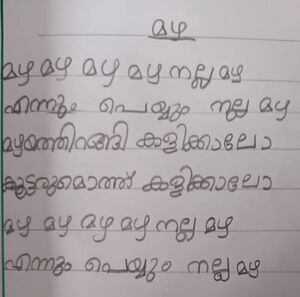 മഴ
മഴ മഴ മഴ മഴ നല്ല മഴ
എന്നും പെയ്യും നല്ല മഴ
മഴയത്തിറങ്ങി കളിക്കാലോ
കൂട്ടരുമൊത്ത് കളിക്കാലോ
മഴ മഴ മഴ മഴ നല്ല മഴ
എന്നും പെയ്യും നല്ല മഴ